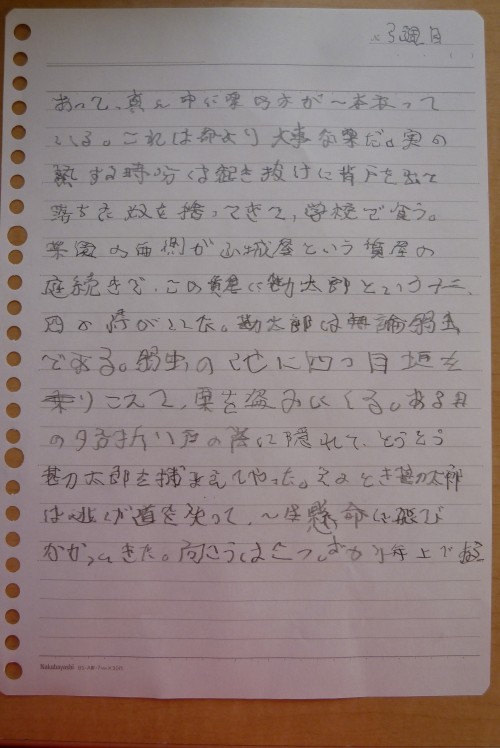 3週目
あって、真ん中に栗の木が一本立って
いる。これは命より大事な栗だ。実の
熟する時分は起き抜けに背戸を出て
落ちた奴を拾ってきて、学校で食う。
菜園の西側が山城屋という質屋の
庭続きで、この質屋に勘太郎という十三
四の倅がいた。勘太郎は無論弱虫
である。弱虫の 四つ目垣を
乗りこえて、栗を盗みにくる。ある日
の夕方折戸の陰に隠れて、とうとう
勘太郎を捕まえてやった。そのとき勘太郎
は逃げ道を失って、一生懸命に飛び
かかってきた。向こうは二つばかり年上で